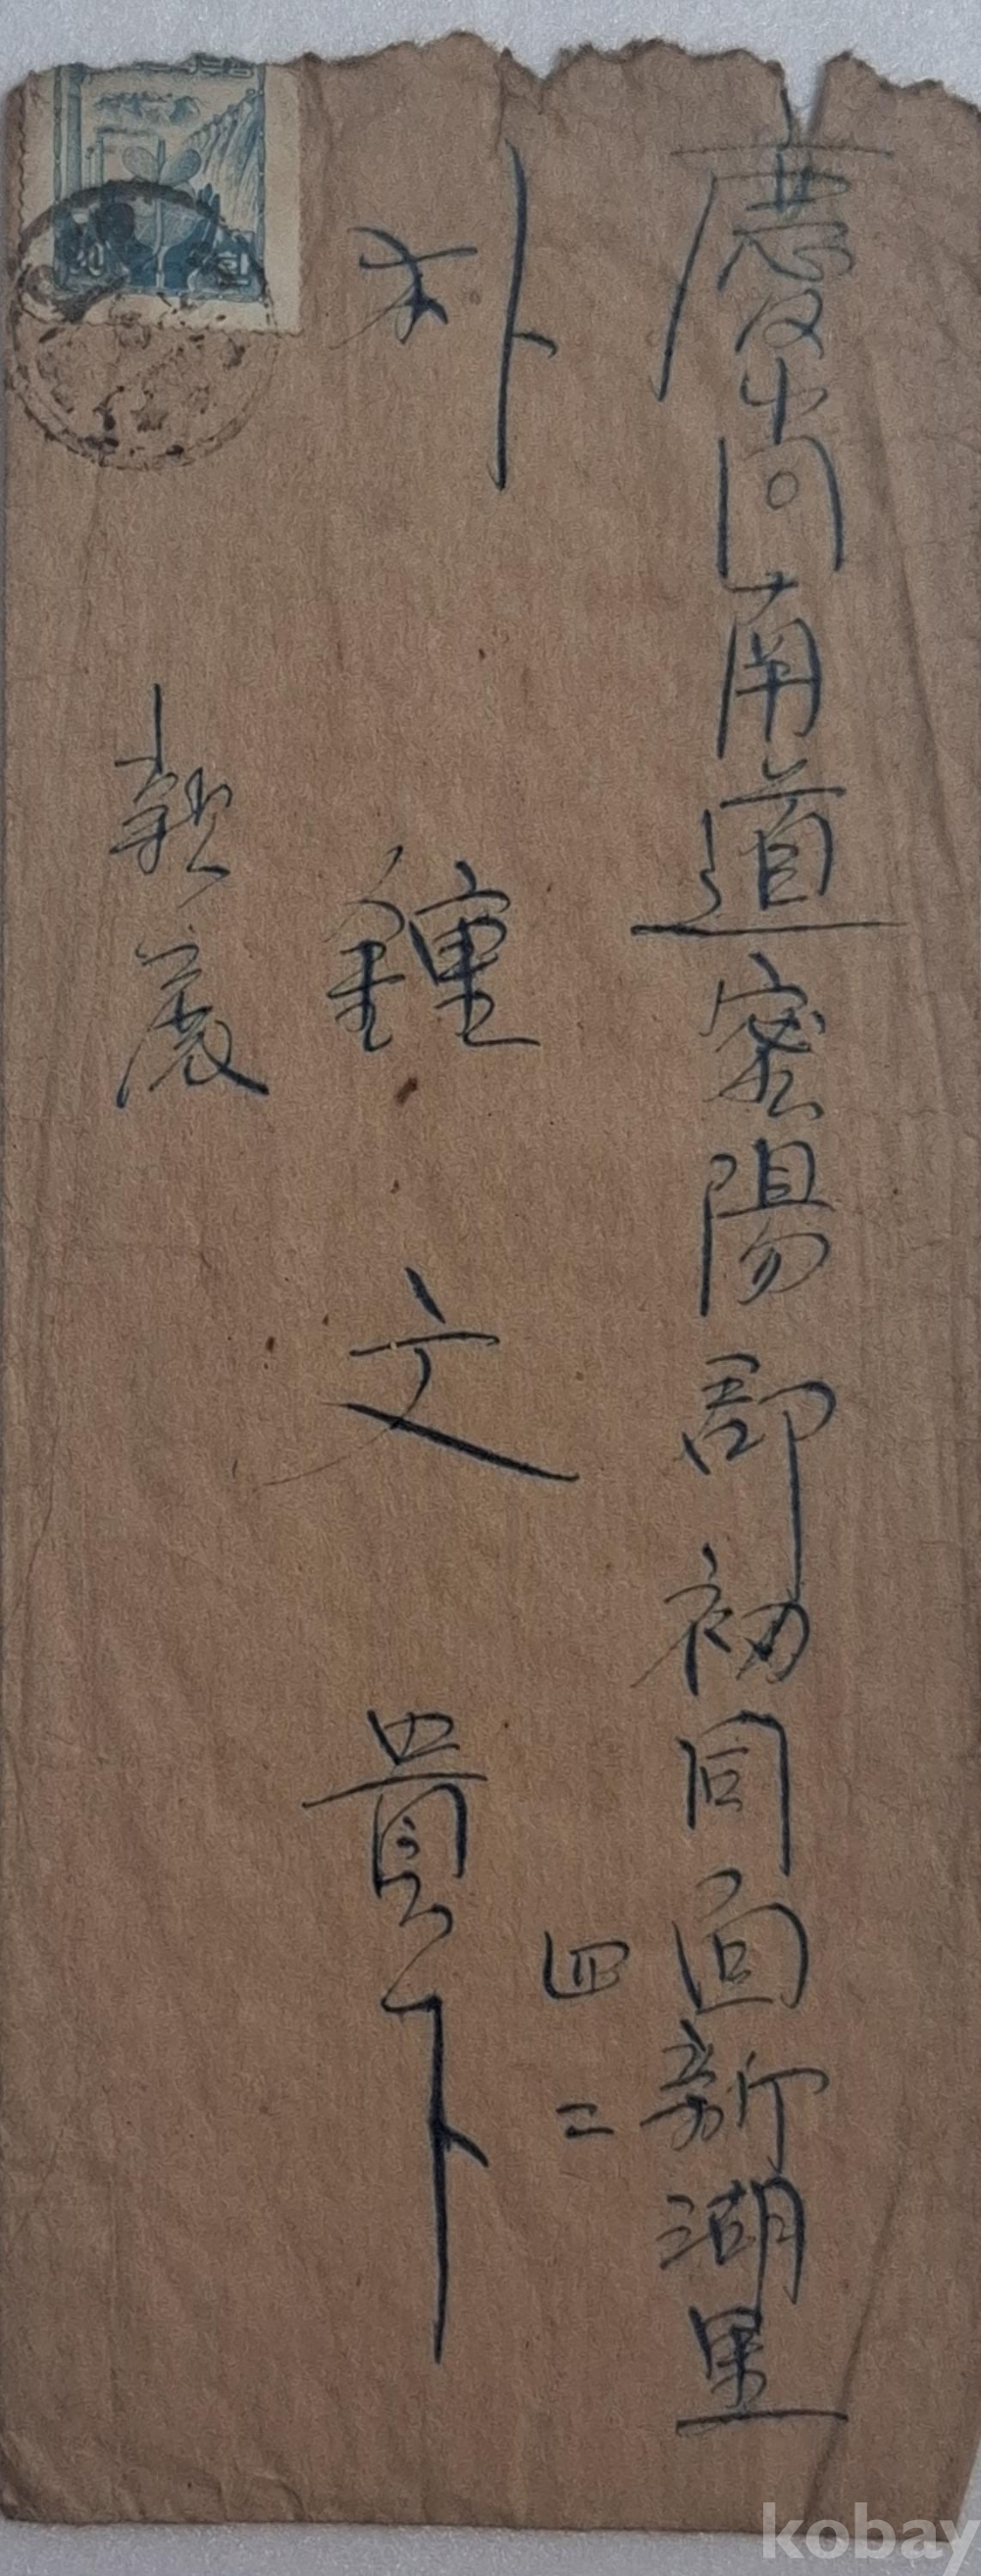 慶尙南道密陽郡初同面新湖里
四二
朴鍾文貴下
親展
kobay